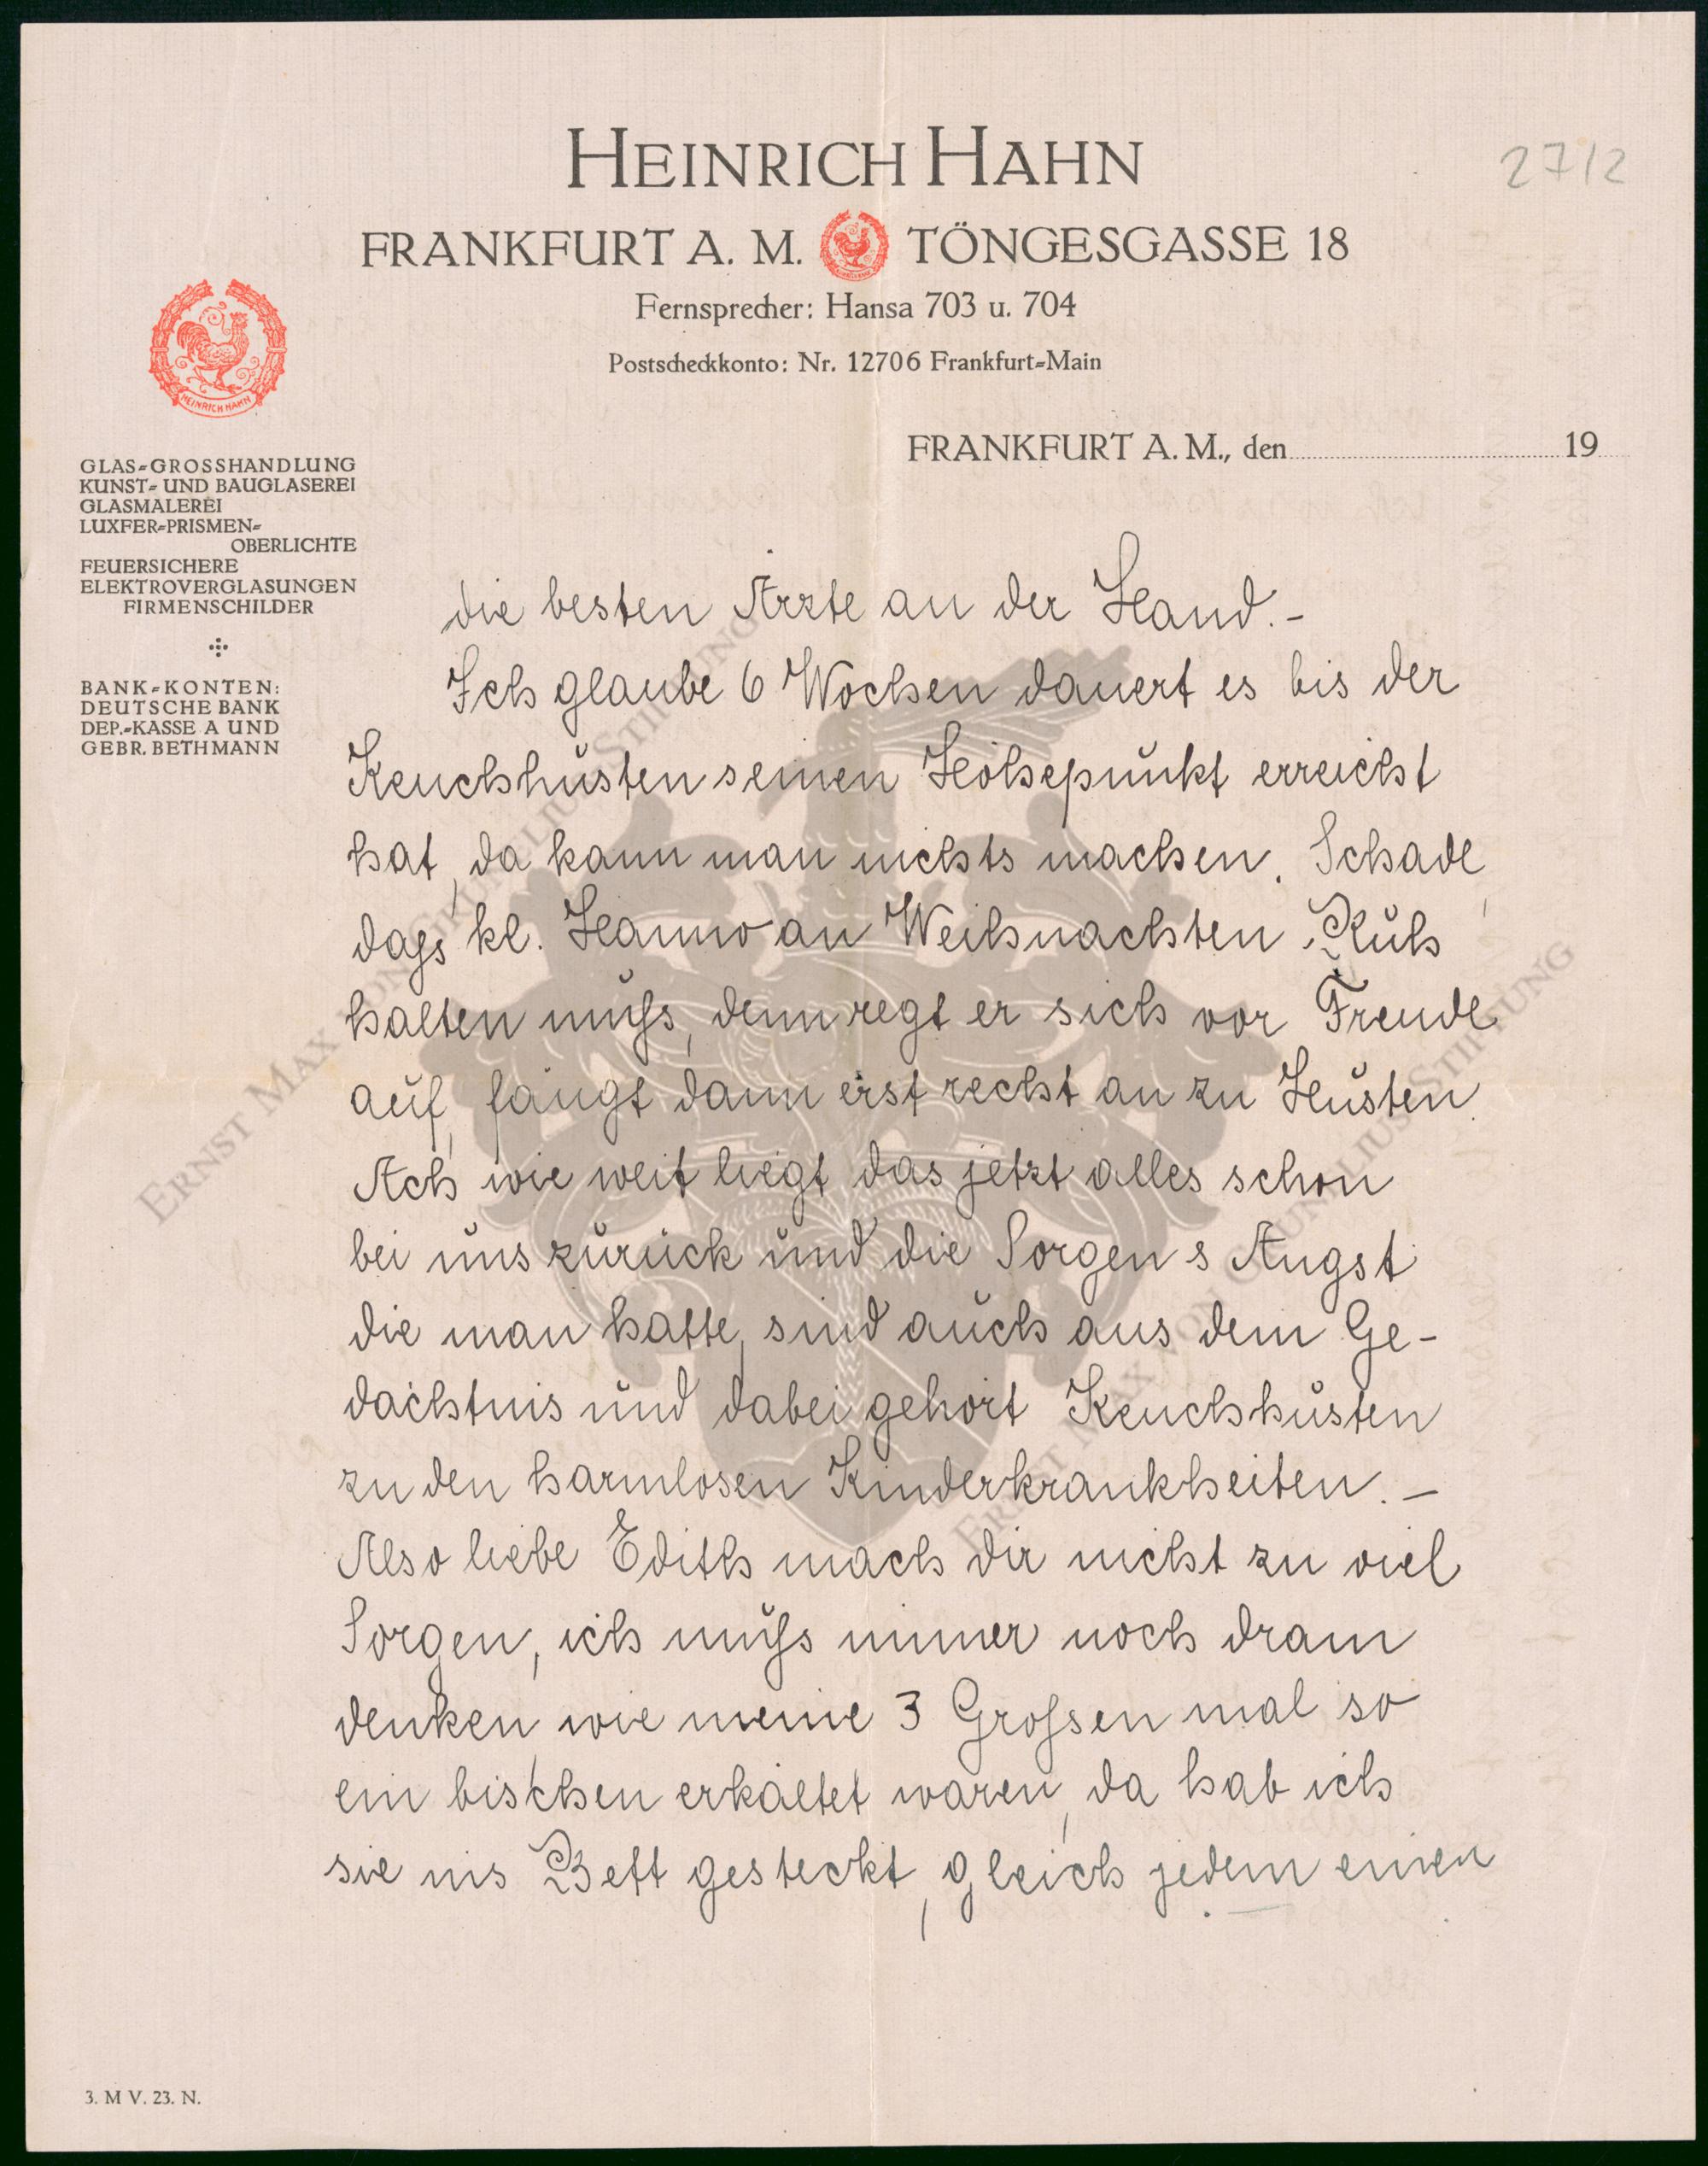 HEINRICH HAHN
2712
FRANKFURT A. M. TÖNGESGASSE 18
Fernsprecher: Hansa 703 u. 704
Postscheckkonto: Nr. 12706 Frankfurt-Main
HEINRICH HAHN
FRANKFURT A. M., den 19
GLAS-GROSSHANDLUNG
KUNST- UND BAUGLASEREI
GLASMALEREI
LUXFER-PRISMEN-
OBERLICHTE
FEUERSICHERE
ELEKTROVERGLASUNGEN
FIRMENSCHILDER
BANK-KONTEN:
DEUTSCHE BANK
DEP.-KASSE A UND
GEBR. BETHMANN
die besten Ärzte an der Hand.-
Ich glaube 6 Wochen dauert es bis der
Keuchhusten seinen Höhepunkt erreicht
hat, da kann man nichts machen. Schade,
dass kl. Hanno an Weihnachten Ruh
halten muss, denn regt er sich vor Freude
auf, fängt dann erst recht an zu Husten.
Ach wie weit liegt das jetzt alles schon
bei uns zurück und die Sorgen s Angst
die man hatte, sind auch aus dem Ge-
dächtnis und dabei gehört Keuchhusten
zu den harmlosen Kinderkrankheiten. –
Also liebe Edith mach dir nicht zu viel
Sorgen, ich muss immer noch dram
denken wie meine 3 Grossen mal so
ein bischen erkältet waren, da hab ich
sie ins Bett gesteckt, gleich jedem einen
3. M V. 23. N.
ERNST MAX VON GRUNELIUS STIFTUNG
ERNST MAX VON GRUNELIUS STIFTUNG